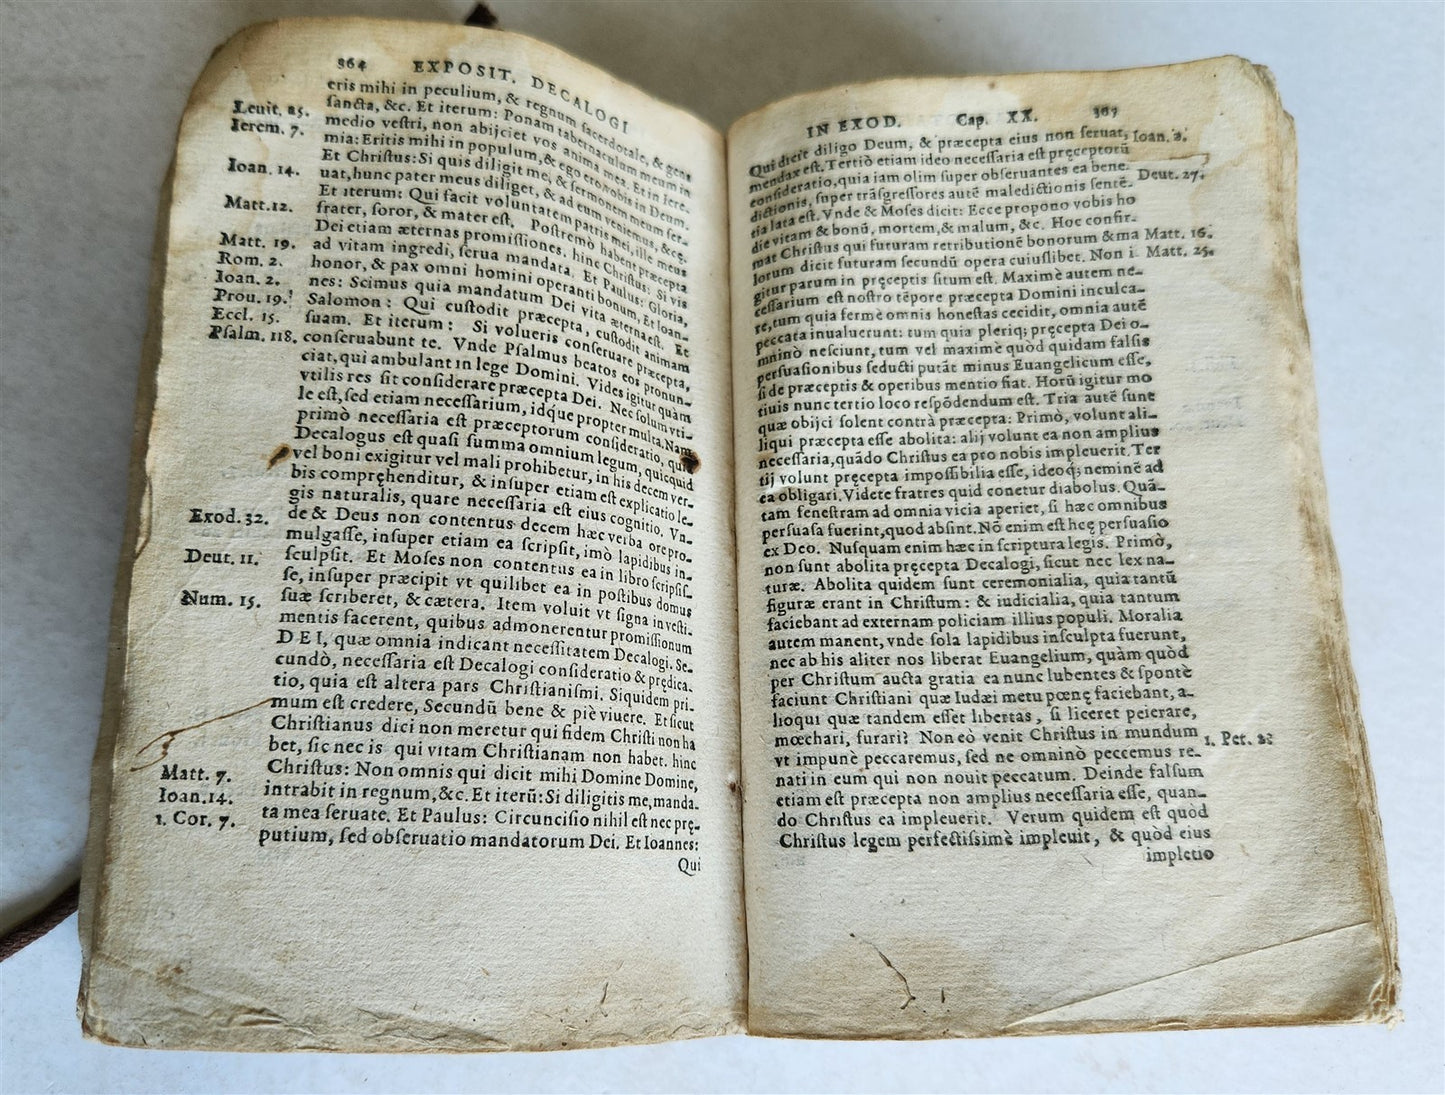 364 EXPOSIT. DECALOGI
eris mihi in peculium, & regnum sacerdotale, & gens
Leuit. 25. sancta, &c. Et iterum: Ponam tabernaculum meum in
Ierem. 7. medio vestri, non abijciet vos anima mea. Et in Iere-
mia: Eritis mihi in populum, & ego ero vobis in Deum.
Ioan. 14. Et Christus: Si quis diligit me, & sermonem meum ser-
uat, hunc pater meus diliget, & ad eum veniemus, &c.
Matt. 12. Et iterum: Qui facit voluntatem patris mei, ille meus
frater, soror, & mater est. Postremò habent præcepta
Dei etiam æternas promissiones. hinc Christus: Si vis
Matt. 19. ad vitam ingredi, serua mandata. Et Paulus: Gloria,
Rom. 2. honor, & pax omni homini operanti bonum, Et Ioan-
Ioan. 2. nes: Scimus quia mandatum Dei vita æterna est. Et
Prou. 19. Salomon: Qui custodit præcepta, custodit animam
Eccl. 15. suam. Et iterum: Si volueris conseruare præcepta,
Psalm. 118. conseruabunt te. Vnde Psalmus beatos eos pronun-
ciat, qui ambulant in lege Domini. Vides igitur quàm
vtilis res sit considerare præcepta Dei. Nec solum vti-
le est, sed etiam necessarium, idque propter multa. Nam
primò necessaria est præceptorum consideratio, quia
Decalogus est quasi summa omnium legum, quicquid
vel boni exigitur vel mali prohibetur, in his decem ver-
bis compręhenditur, & insuper etiam est explicatio le-
gis naturalis, quare necessaria est eius cognitio. Vn-
Exod. 32. de & Deus non contentus decem hæc verba ore pro-
mulgasse, insuper etiam ea scripsit, imò lapidibus in-
Deut. 11. sculpsit. Et Moses non contentus ea in libro scripsis-
se, insuper præcipit vt quilibet ea in postibus domus
Num. 15. suæ scriberet, & cætera. Item voluit vt signa in vesti-
mentis facerent, quibus admonerentur promissionum
DEI, quæ omnia indicant necessitatem Decalogi. Se-
cundò, necessaria est Decalogi consideratio & prędica-
tio, quia est altera pars Christianismi. Siquidem pri-
mum est credere, Secundū bene & piè viuere. Et sicut
Christianus dici non meretur qui fidem Christi non ha
bet, sic nec is qui vitam Christianam non habet. hinc
Matt. 7. Christus: Non omnis qui dicit mihi Domine Domine,
Ioan. 14. intrabit in regnum, &c. Et iterū: Si diligitis me, manda-
1. Cor. 7. ta mea seruate. Et Paulus: Circuncisio nihil est nec prę-
putium, sed obseruatio mandatorum Dei. Et Ioannes:
Qui
IN EXOD. Cap. XX. 365
Qui dicit diligo Deum, & præcepta eius non seruat, Ioan. 2.
mendax est. Tertiò etiam ideo necessaria est pręceptorū
consideratio, quia iam olim super obseruantes ea bene-
dictionis, super trāsgressores autē maledictionis sentē- Deut. 27.
tia lata est. Vnde & Moses dicit: Ecce propono vobis ho
die vitam & bonū, mortem, & malum, &c. Hoc confir-
mat Christus qui futuram retributionē bonorum & ma Matt. 16.
lorum dicit futuram secundū opera cuiuslibet. Non i Matt. 25.
gitur parum in pręceptis situm est. Maximè autem ne-
cessarium est nostro tēpore præcepta Domini inculca-
re, tum quia fermè omnis honestas cecidit, omnia autē
peccata inualuerunt: tum quia pleriq; præcepta Dei o-
mninò nesciunt, tum vel maximè quòd quidam falsis
persuasionibus seducti putāt minus Euangelicum esse,
si de præceptis & operibus mentio fiat. Horū igitur mo
tiuis nunc tertio loco respōdendum est. Tria autē sunt
quæ obijci solent contrà præcepta: Primò, volunt ali-
liqui præcepta esse abolita: alij volunt ea non amplius
necessaria, quādo Christus ea pro nobis impleuerit. Ter
tij volunt pręcepta impossibilia esse, ideoq; neminē ad
ea obligari. Videte fratres quid conetur diabolus. Quā-
tam fenestram ad omnia vicia aperiet, si hæc omnibus
persuasa fuerint, quod absint. Nō enim est hęc persuasio
ex Deo. Nusquam enim hæc in scriptura legis. Primò,
non sunt abolita pręcepta Decalogi, sicut nec lex na-
turæ. Abolita quidem sunt ceremonialia, quia tantū
figuræ erant in Christum: & iudicialia, quia tantum
faciebant ad externam policiam illius populi. Moralia
autem manent, vnde sola lapidibus insculpta fuerunt,
nec ab his aliter nos liberat Euangelium, quàm quòd
per Christum aucta gratia ea nunc lubentes & spontè
faciunt Christiani quæ Iudæi metu pœnę faciebant, a-
lioqui quæ tandem esset libertas, si liceret peierare,
mœchari, furari? Non eò venit Christus in mundum 1. Pet. 2:
vt impunè peccaremus, sed ne omninò peccemus re-
nati in eum qui non nouit peccatum. Deinde falsum
etiam est præcepta non amplius necessaria esse, quan-
do Christus ea impleuerit. Verum quidem est quòd
Christus legem perfectissimè impleuit, & quòd eius
impletio